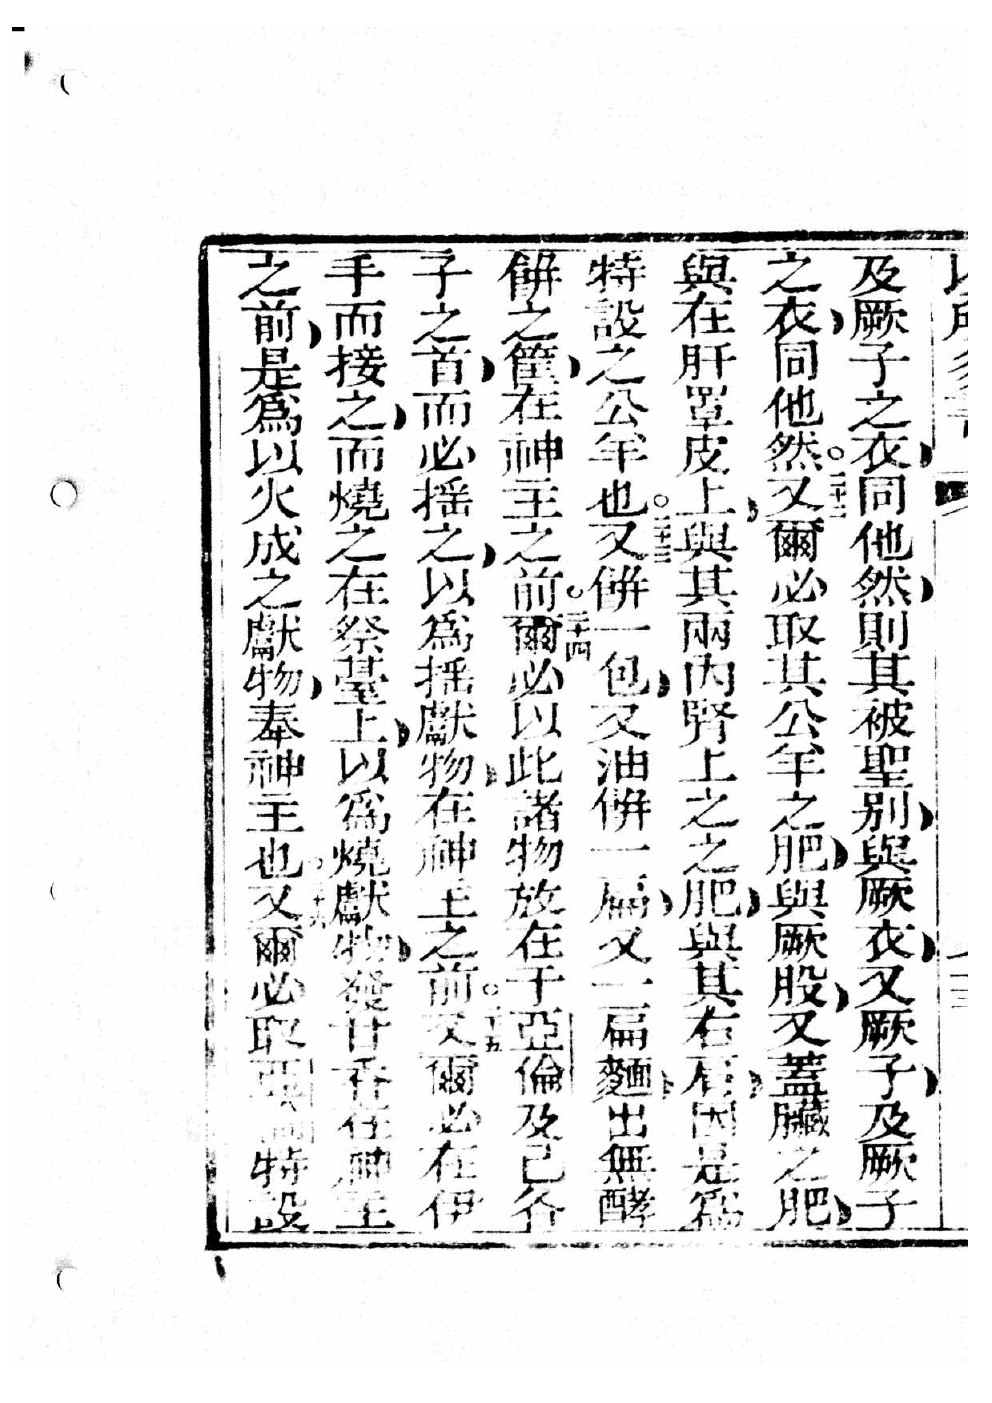 及厥子之衣同他然則其被聖別與厥衣又厥子及厥子
之衣同他然○二十二又爾必取其公羊之肥與厥股又蓋臟之肥
與在肝罩皮上與其兩內腎上之之肥與其右肩因是爲
特設之公羊也○二十三又餅一包又油餅一扁又一扁麵出無酵
餅之筐在神主之前○二十四爾必以此諸物放在于亞倫及己各
子之首而必揺之以爲揺獻物在神主之前○二十五又爾必在伊
手而接之而燒之在祭臺上以爲燒獻物發甘香在神主
之前是爲以火成之獻物奉神主也○二十六又爾必取亞倫特設